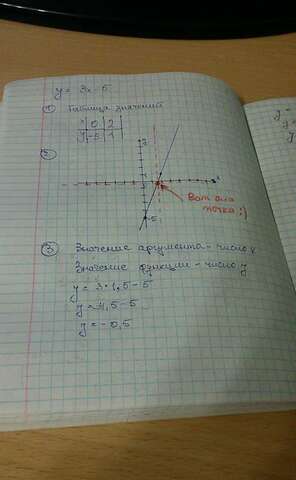 y = 3x - 5
① Таблица значений
x 0 2
y -5 1
②
Вот эта
точка :)
-5
③ Значение аргумента - число x
Значение функции - число y
y = 3 · 1,5 - 5
y = 4,5 - 5
y = - 0,5